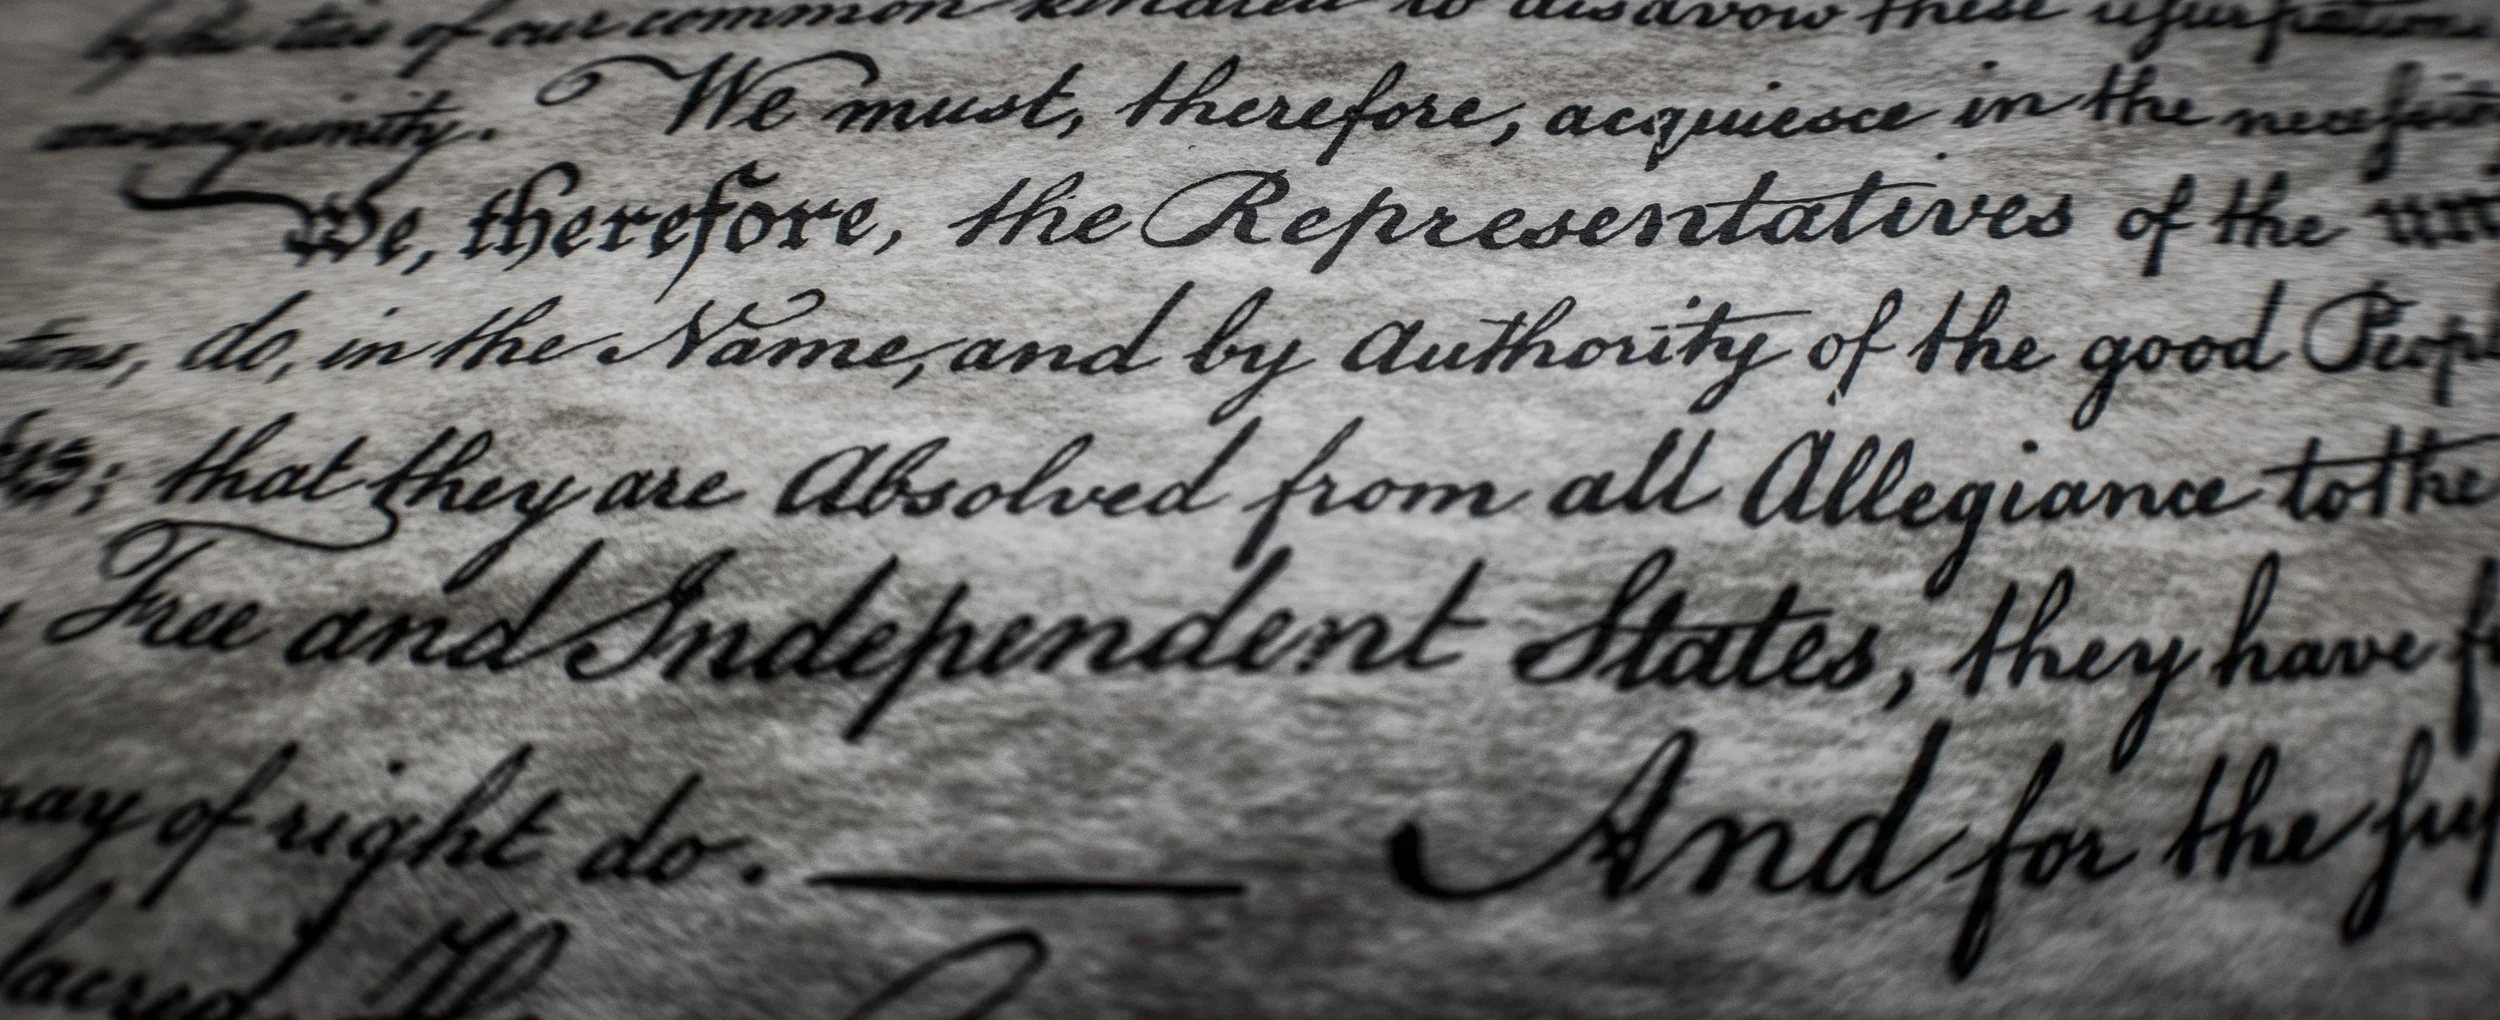 by the ties of our common kindred to disavow these usurpations
consanguinity. We must, therefore, acquiesce in the necessit
We, therefore, the Representatives of the unit
tions, do, in the Name, and by Authority of the good Peopl
tes; that they are Absolved from all Allegiance to the
Free and Independent States, they have fu
may of right do. — And for the sup
sacred H